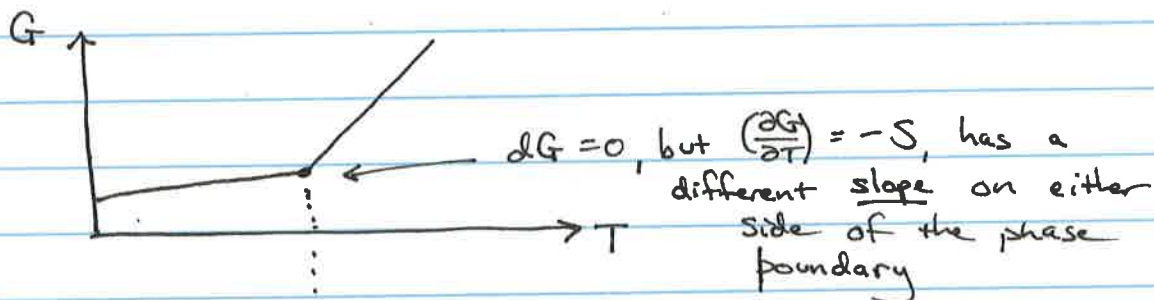 G
dG = 0, but (∂G/∂T) = -S, has a
different slope on either
side of the phase
boundary
T